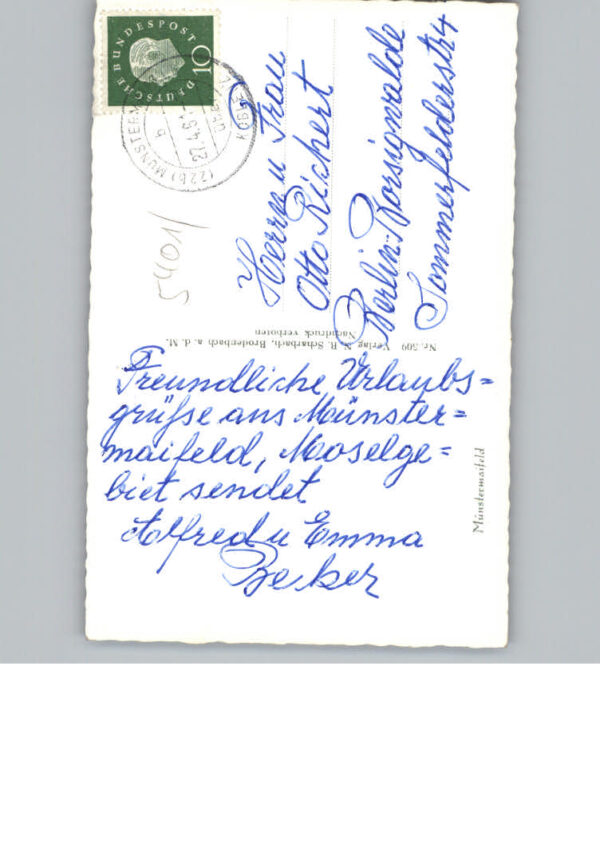 Freundliche Urlaubs=
grüße aus Münster=
maifeld, Mooselge=
biet sendet
Alfred u Emma
Becker
Herrn u Frau
Otto Richert
Berlin-Borsigwalde
Sommerfelderstr 4
DEUTSCHE BUNDESPOST
10
(22b) MÜNSTERM
27.4.61
b
5401/
Nr. 509 Verlag N. B. Scharbach, Brodenbach a. d. M.
Nachdruck verboten
Münstermaifeld